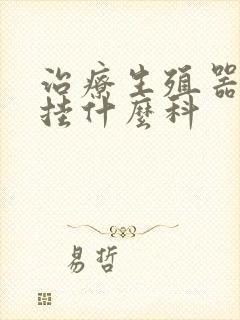 治療生殖器
挂什麼科
易哲